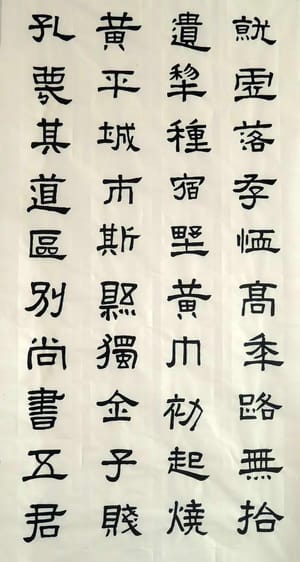 就虛落存恤高年路無拾
遺犁種宿野黃巾初起燒
黃平城市斯縣獨金子賤
孔蔑其道區別尚書五君